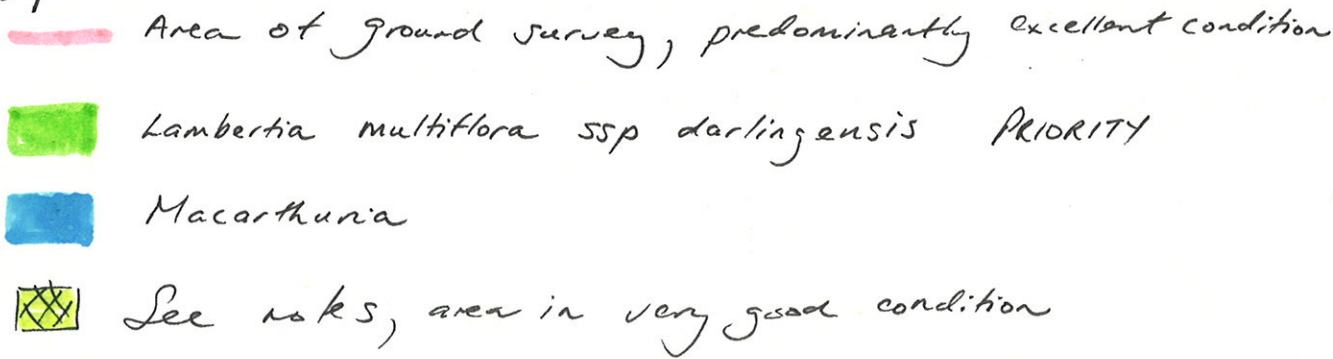 Area of ground survey, predominantly excellent condition
Lambertia multiflora ssp darlingensis PRIORITY
Macarthuria
See notes, area in very good condition